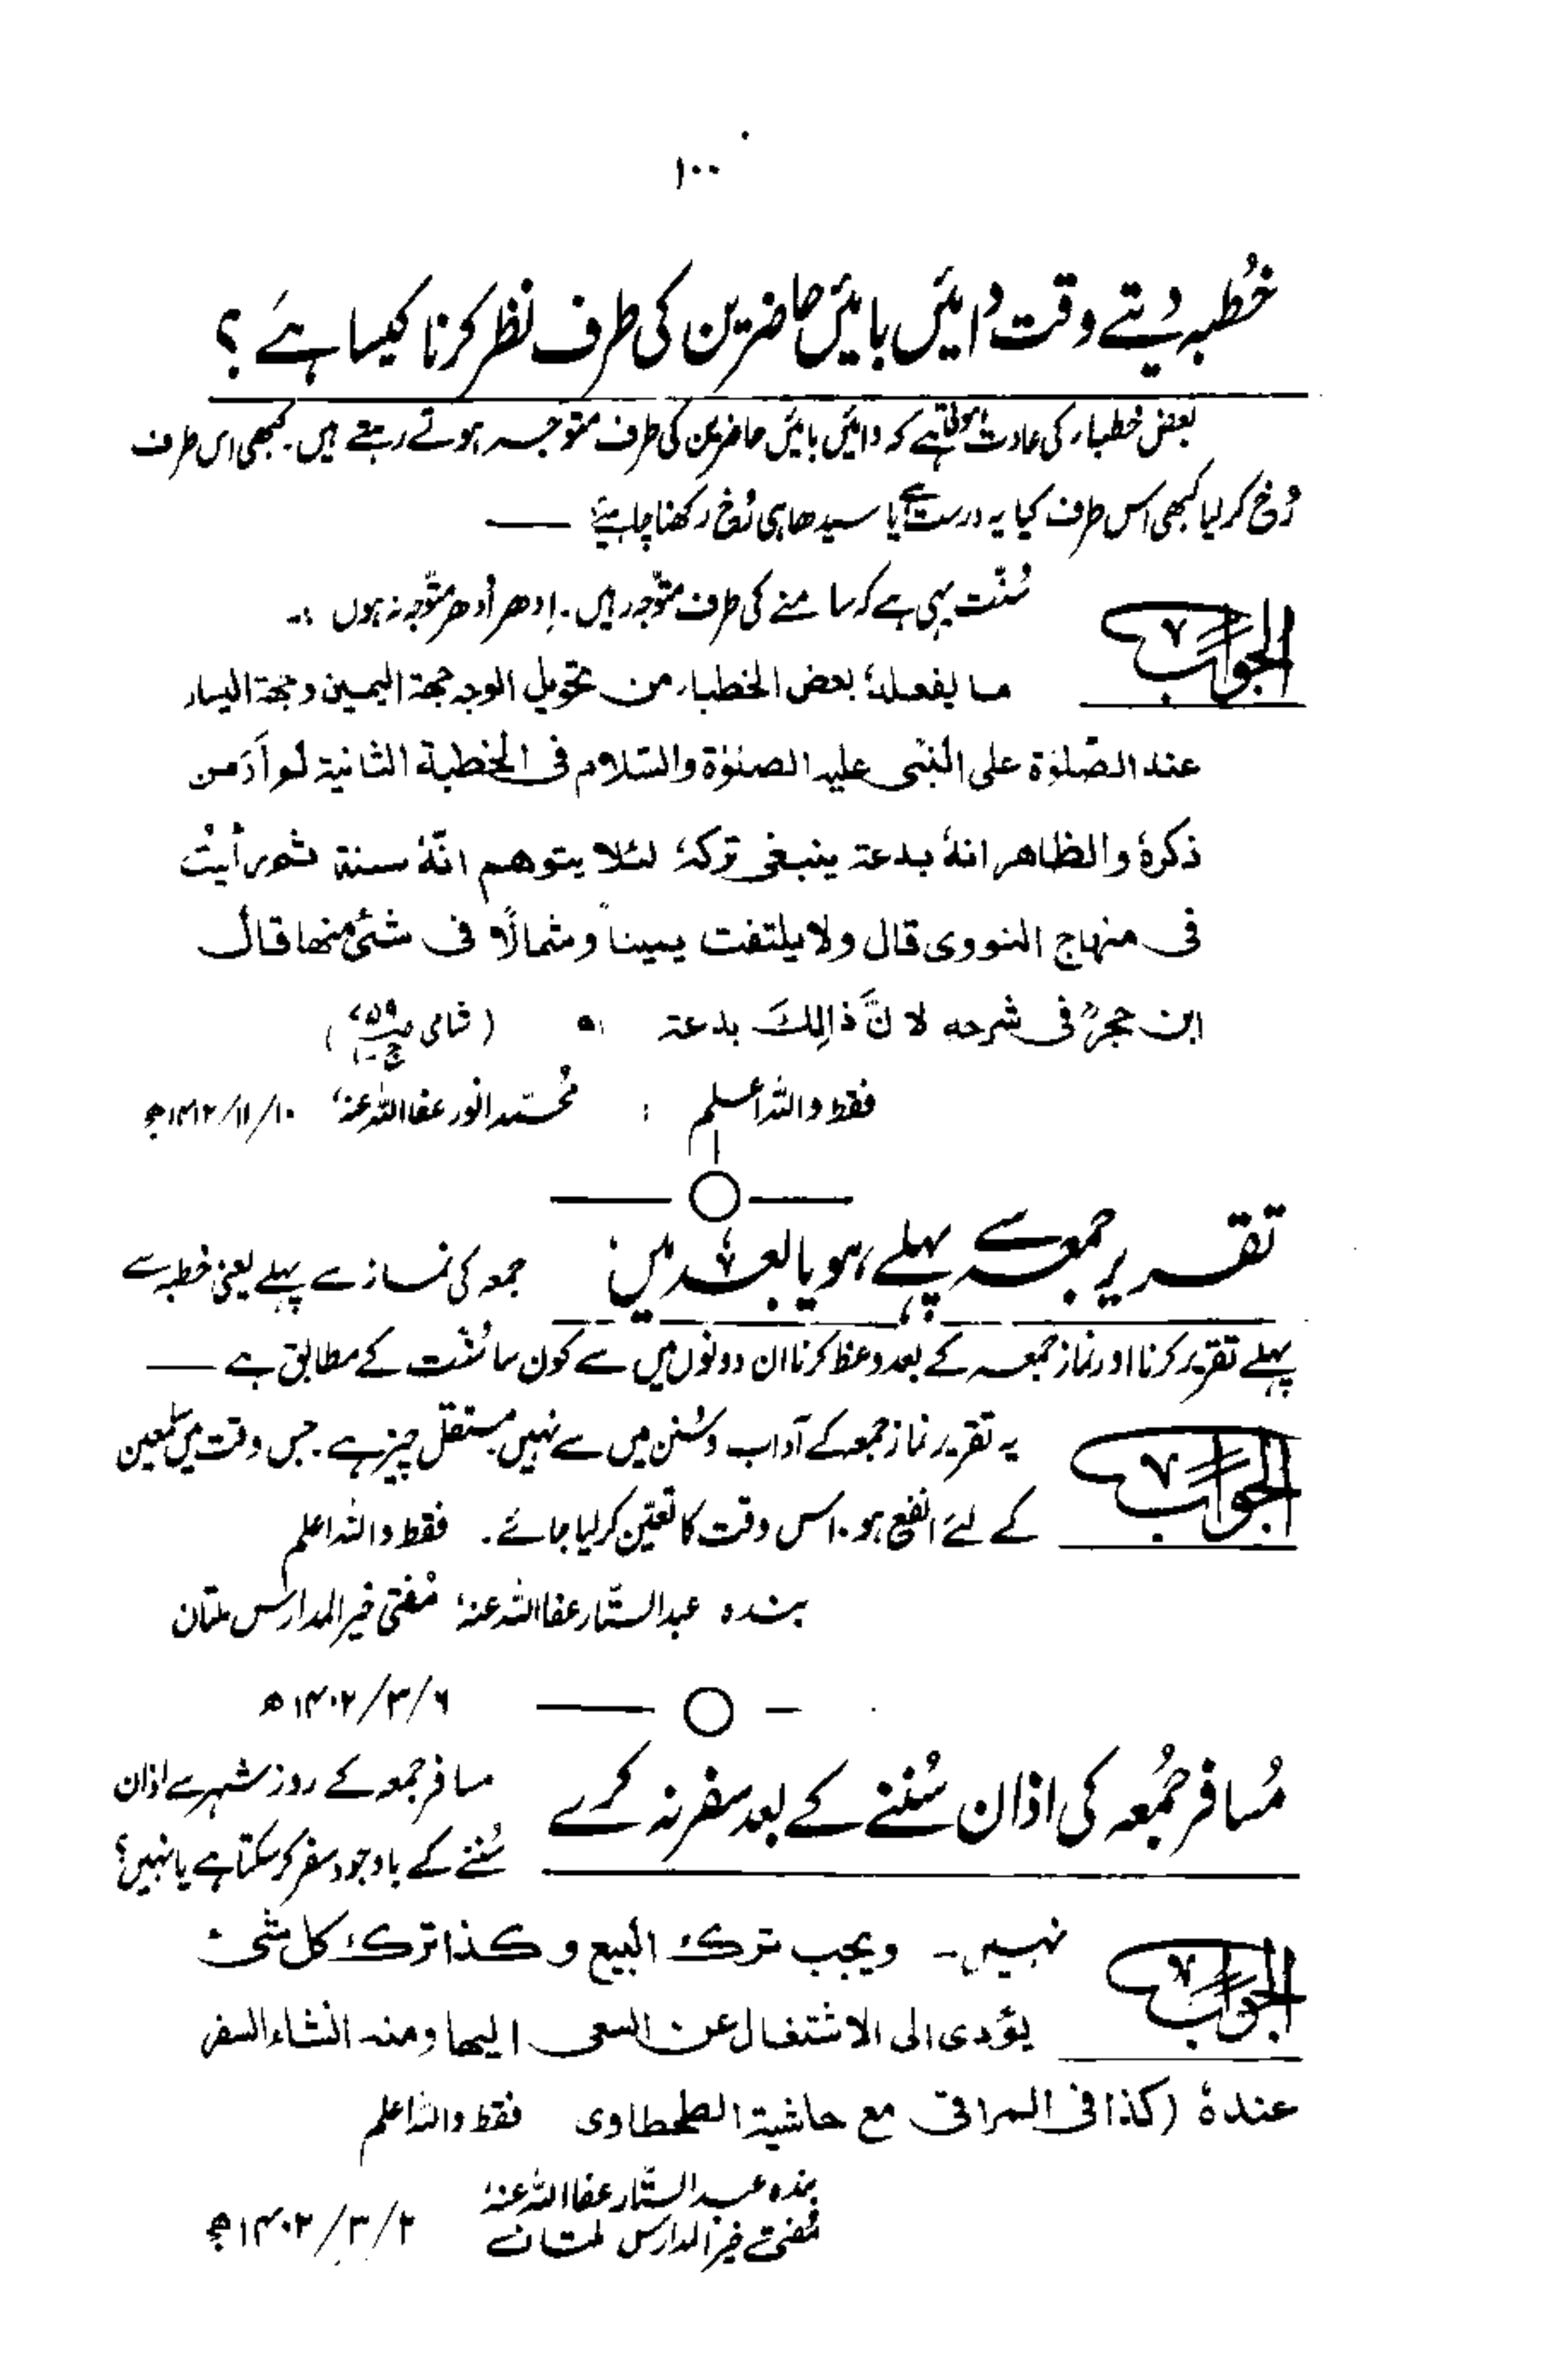 ۱۰۰
خُطبہ دیتے وقت دائیں بائیں حاضرین کی طرف نظر کرنا کیسا ہے ؟
بعض خطباء کی عادت ہوتی ہے کہ دائیں بائیں حاضرین کی طرف متوجہ ہوتے رہتے ہیں۔ کبھی اس طرف
رُخ کر لیا کبھی اس طرف کیا یہ درست ہے یا سیدھا ہی رُخ رکھنا چاہیئے ——
الجواب
سُنّت یہی ہے کہ سامنے کی طرف متوّجہ رہیں۔ اِدھر اُدھر متوّجہ نہ ہوں :-
ما یفعلہٗ بعض الخطباء من تحویل الوجہ جھۃ الیمین وجھۃ الیسار
عند الصّلوٰۃ علی النّبی علیہ الصلوٰۃ والسّلام فی الخطبۃ الثانیۃ لم اَرَ من
ذکرہٗ والظاھر انہٗ بدعۃ ینبغی ترکہٗ لئلا یتوھم انّہٗ سنۃ ثم رأیتُ
فی منہاج النووی قال ولا یلتفت یمیناً وشمالًا فی شئی منھا قال
ابن حجرؒ فی شرحہ لانَّ ذالِکَ بدعۃ اھ (شامی ص۷۵۹ ج۱)
فقط واللہ اعلم : محمّد انور عفا اللہ عنہٗ ۱۰/۱۱/۱۴۱۲ھ
تقریر جمعہ سے پہلے ہو یا بعد میں :
جمعہ کی نماز سے پہلے یعنی خطبہ سے
پہلے تقریر کرنا اور نماز جمعہ کے بعد وعظ کرنا ان دونوں میں سے کون سا سُنّت کے مطابق ہے ——
الجواب
یہ تقریر نماز جمعہ کے آداب وسُنن میں سے نہیں مستقل چیز ہے۔ جس وقت میں سامعین
کے لئے انفع ہو۔ اس وقت کا تعیّن کر لیا جائے۔ فقط واللہ اعلم
بندہ عبدالستّار عفا اللہ عنہٗ مُفتی خیر المدارس ملتان
۶/۳/۱۴۰۲ھ
مُسافر جُمعہ کی اذان سُننے کے بعد سفر نہ کرے
مسافر جمعہ کے روز شہر سے اذان
سُننے کے باوجود سفر کر سکتا ہے یا نہیں؟
الجواب
نہیں۔ ویجب ترک البیع وکذا ترک کل شئ
یؤدی الی الاشتغال عن السعی الیھا ومنہ انشاء السفر
عندہٗ (کذا فی المراقی مع حاشیۃ الطحطاوی فقط واللہ اعلم
بندہ عبدالستّار عفا اللہ عنہٗ
مُفتی خیر المدارس ملتان ۲/۳/۱۴۰۲ھ